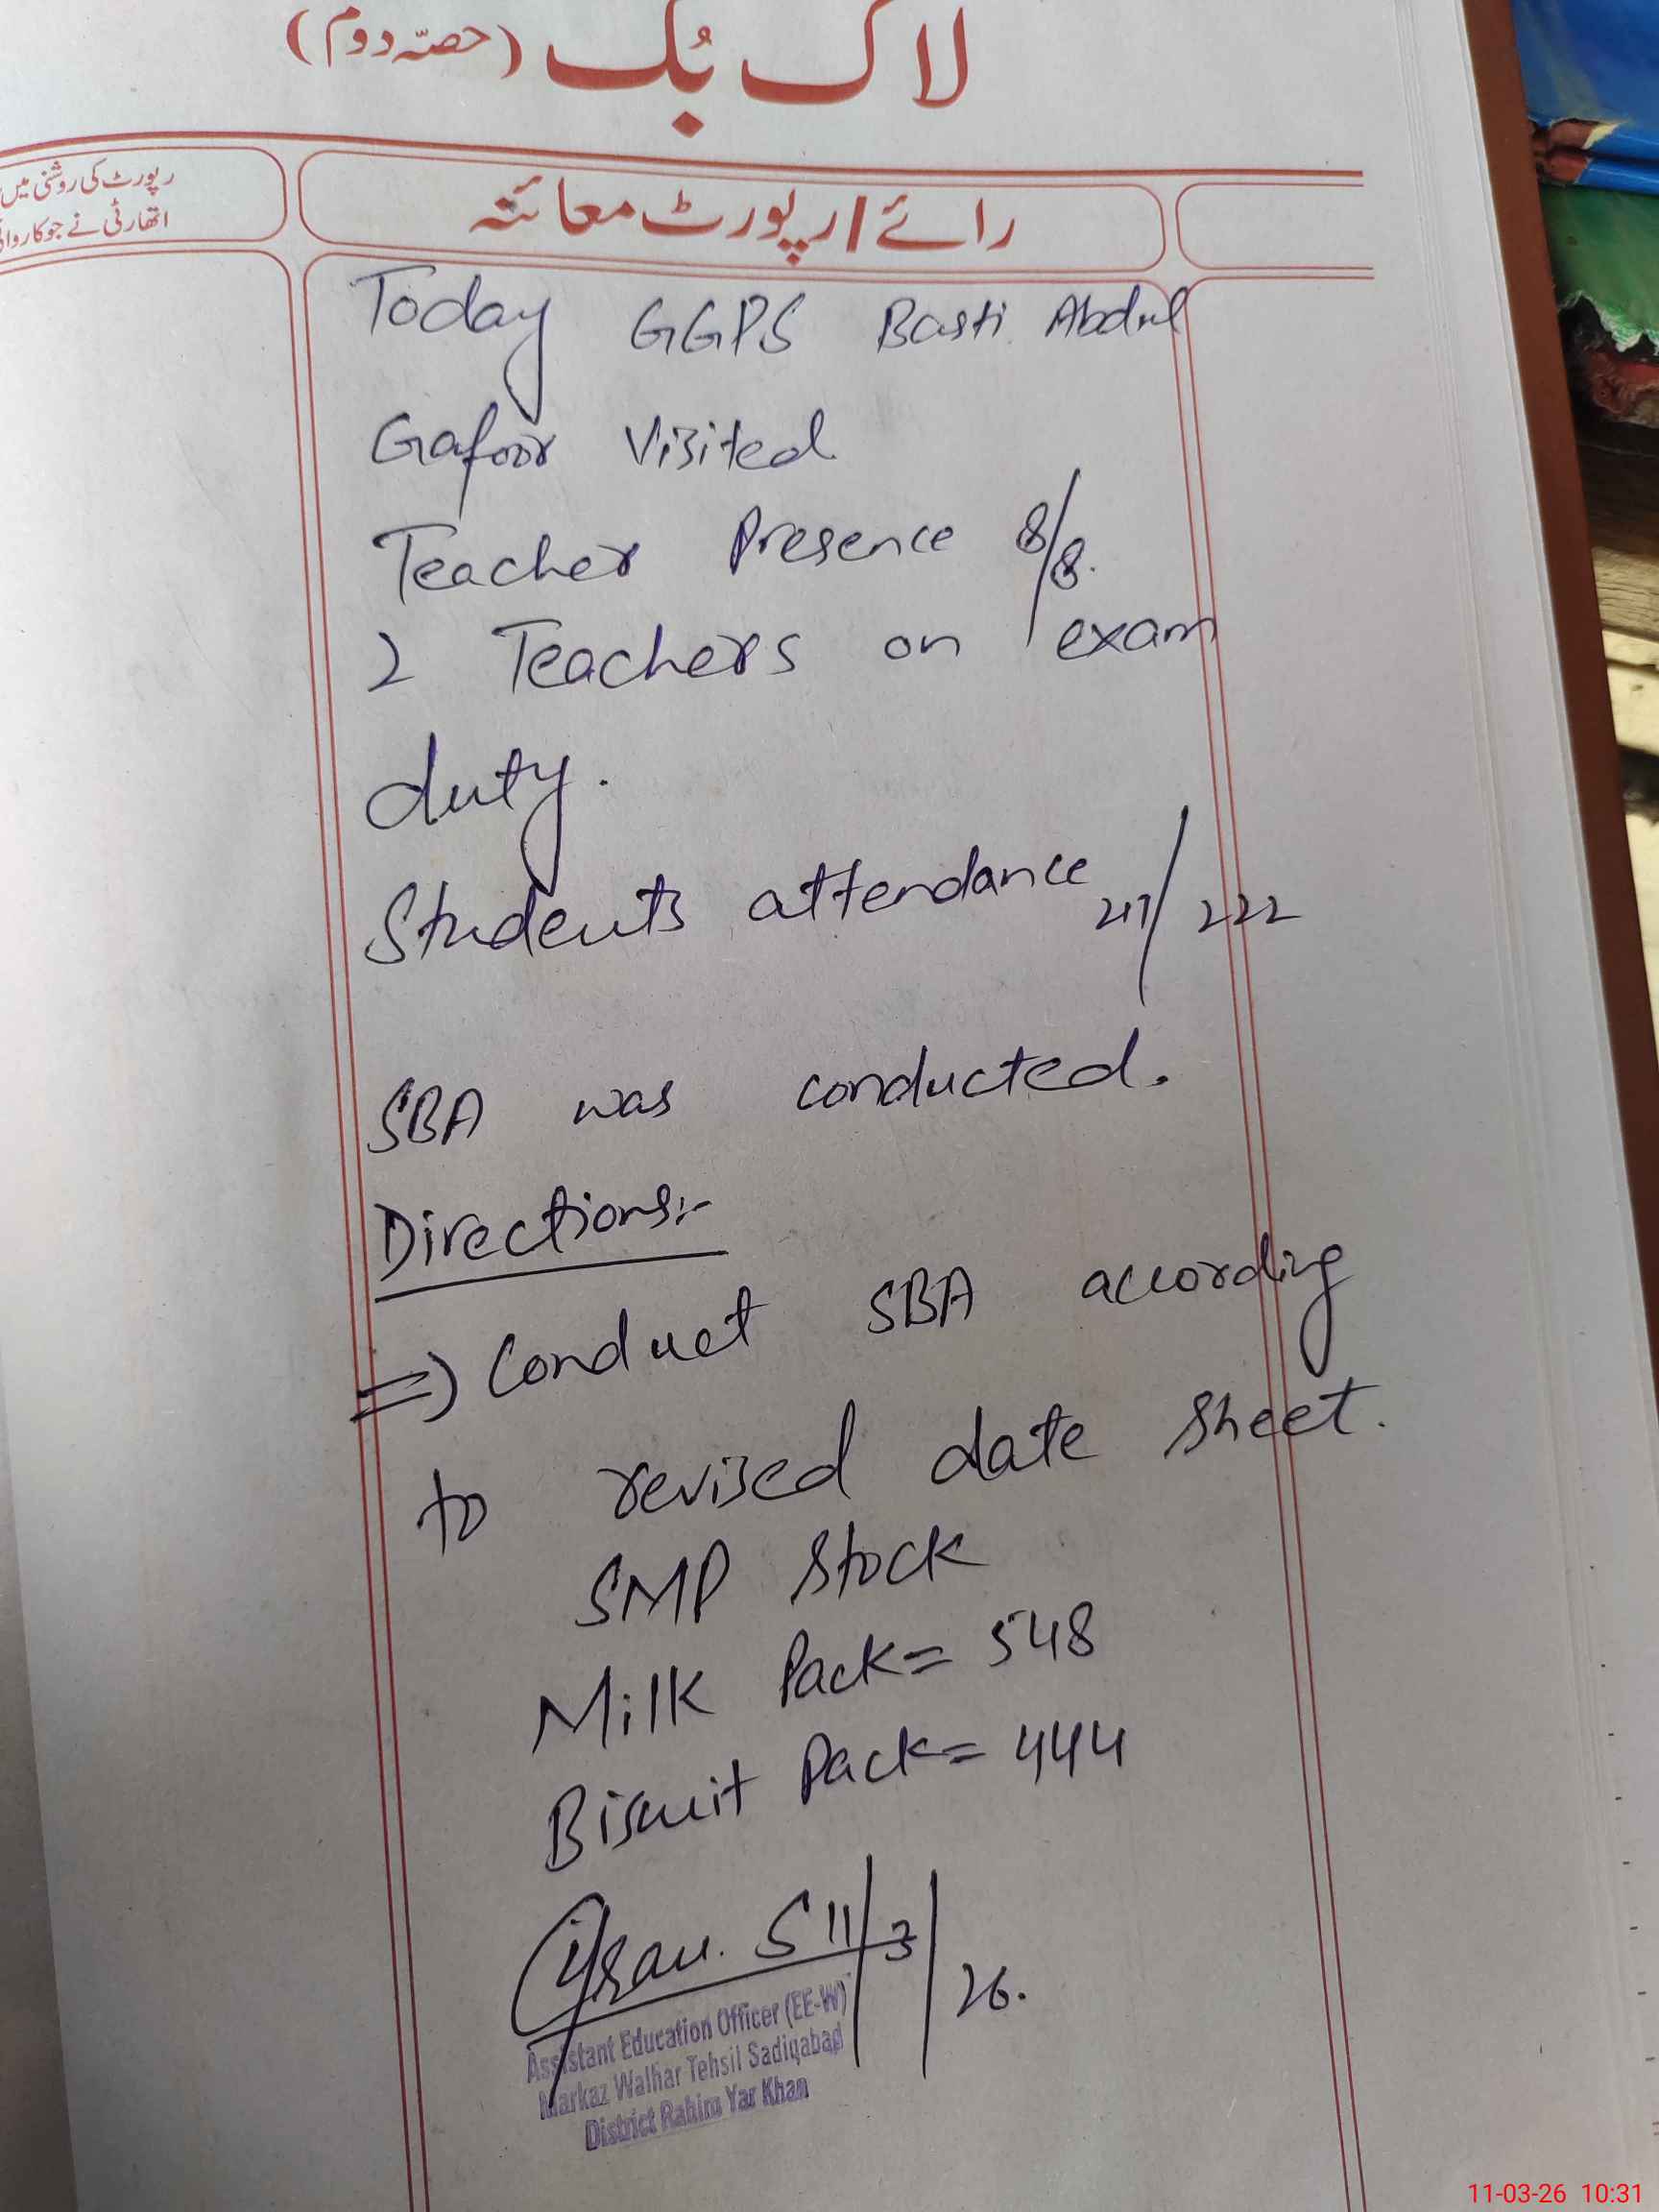 لاگ بُک (حصّہ دوم)
رائے / رپورٹ معائنہ
رپورٹ کی روشنی میں
اتھارٹی نے جو کاروا
Today GGPS Basti Abdul
Gafoor Visited
Teacher Presence 8/8.
2 Teachers on exam
duty.
Students attendance 217/222
SBA was conducted.
Directions:-
=> Conduct SBA according
to revised date sheet.
SMP Stock
Milk Pack= 548
Biscuit Pack= 444
11/3/26.
Assistant Education Officer (EE-W)
Markaz Walhar Tehsil Sadiqabad
District Rahim Yar Khan
11-03-26 10:31